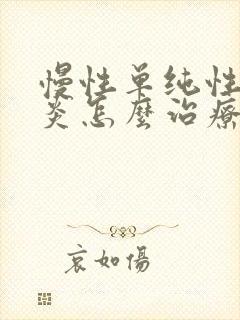 慢性单纯性
炎怎麼治療
哀如傷